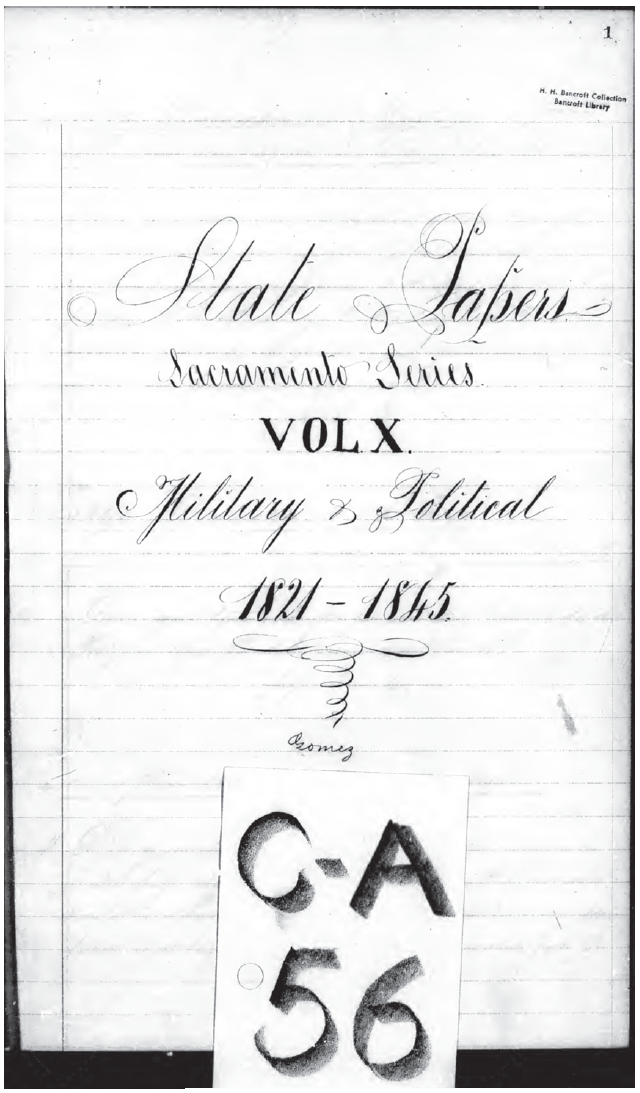 1
H. H. Bancroft Collection
Bancroft Library
State Papers
Sacramento Series.
VOL X.
Military & Political
1821 – 1845.
Gomez
C-A
56